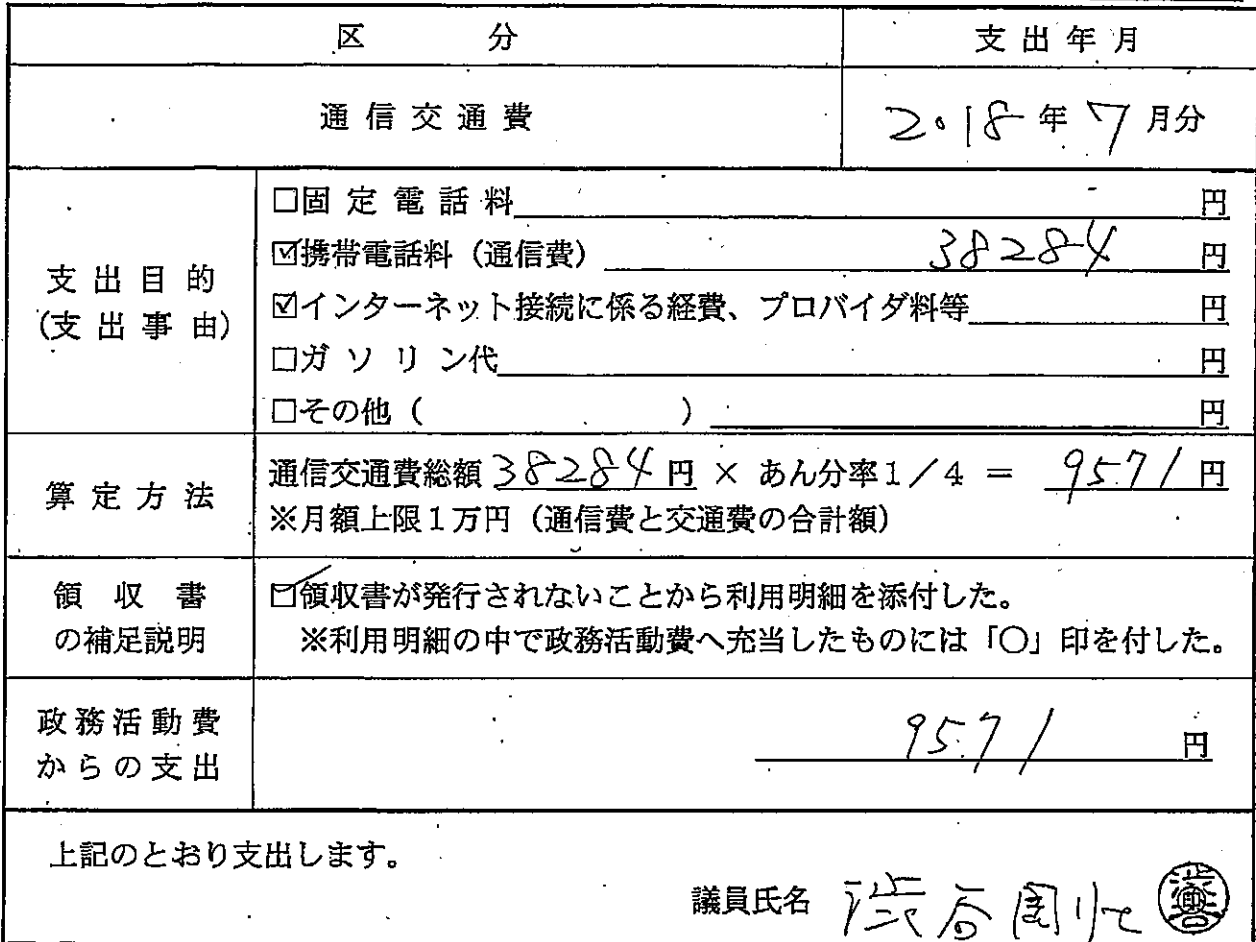 区 分 支出年月
通信交通費 2018年7月分
□固定電話料 円
☑携帯電話料（通信費） 38284 円
支出目的
（支出事由）
☑インターネット接続に係る経費、プロバイダ料等 円
□ガソリン代 円
□その他（ ） 円
算定方法
通信交通費総額 38284円 × あん分率1／4 ＝ 9571円
※月額上限1万円（通信費と交通費の合計額）
領収書
の補足説明
☑領収書が発行されないことから利用明細を添付した。
※利用明細の中で政務活動費へ充当したものには「○」印を付した。
政務活動費
からの支出
9571 円
上記のとおり支出します。
議員氏名 渋谷